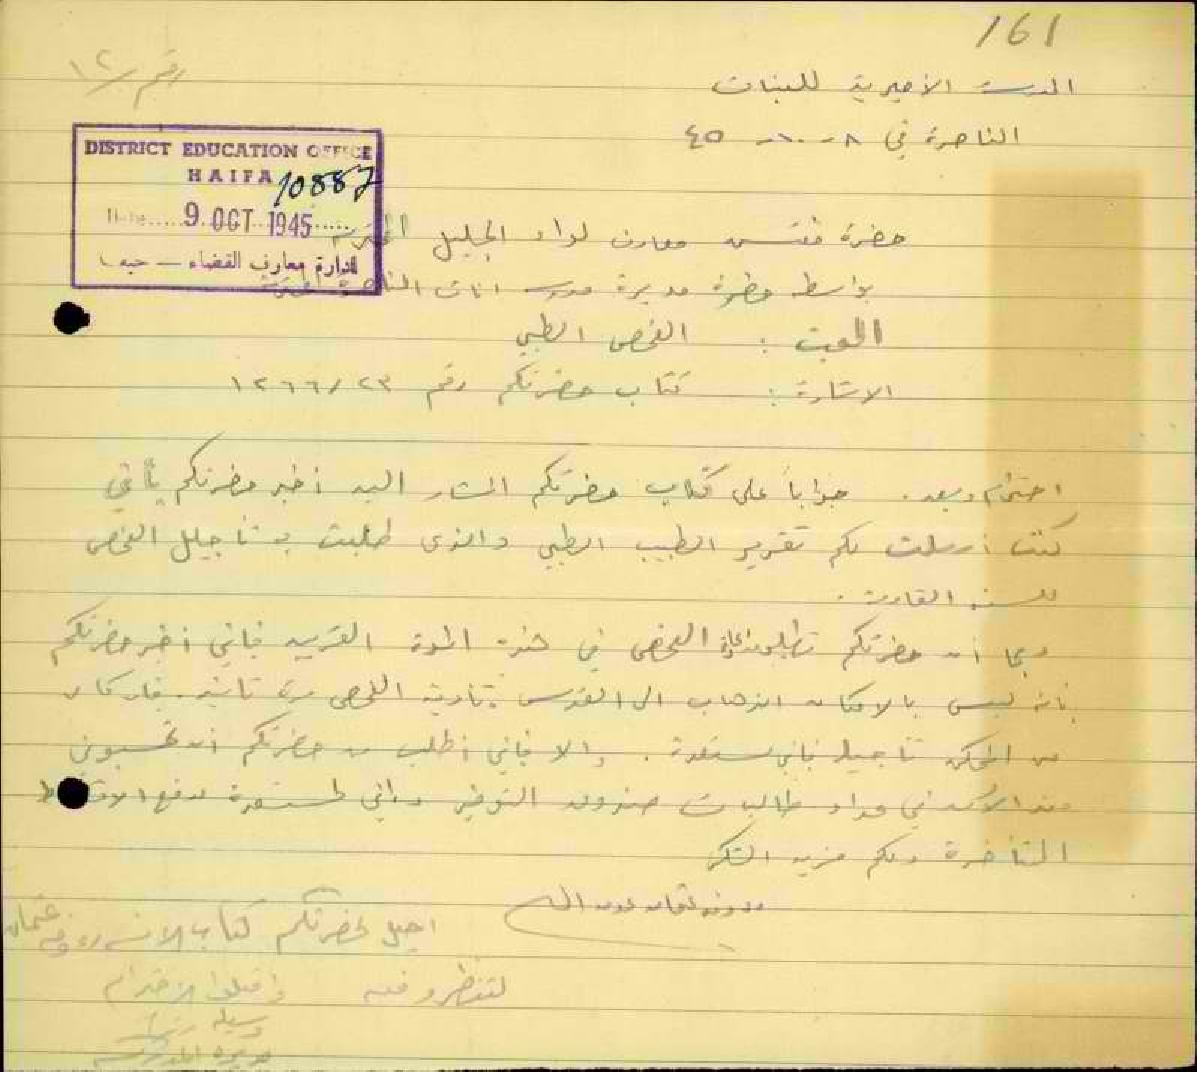 161
رقم ١٢
المدرسة الأميرية للبنات
الناصرة في ٨-١٠-٤٥
DISTRICT EDUCATION OFFICE
HAIFA
10887
Date 9 OCT 1945
ادارة معارف القضاء — حيفا
حضرة مفتش معارف لواء الجليل المحترم
بواسطة حضرة مديرة مدرسة اناث الناصرة المحترمة
البحث : الفحص الطبي
الاشارة : كتاب حضرتكم رقم ١٢٦٦/٢٣
احترام وبعد . جواباً على كتاب حضرتكم المشار اليه أخبر حضرتكم بأني
كنت أرسلت لكم تقرير الطبيب الطبي والذي طلبت به تأجيل الفحص
للسنة القادمة .
وبما أن حضرتكم تطلبون اعادة الفحص في هذه المدة القريبة فاني أخبر حضرتكم
بانه ليس بالامكان الذهاب الى القدس لتأدية الفحص مرة ثانية . فان كان
من الممكن تأجيله فاني مستعدة . والا فاني أطلب من حضرتكم أن تحسبوني
منذ الآن في عداد طالبات صندوق التوفير واني مستعدة لدفع الاقساط
المتأخرة ولكم مزيد الشكر
احيل لحضرتكم كتاب الانسة عثمان
لتنظروا فيه واقبلوا الاحترام
وسيلة
مديرة المدرسة